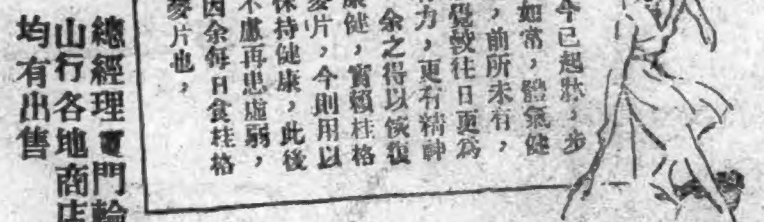 今已起牀，步
如常，體氣健
，前所未有，
覺較往日更爲
力，更有精神
余之得以恢復
康健，實賴桂格
麥片，今則用以
保持健康，此後
不慮再患虛弱，
因余每日食桂格
麥片也，
總經理 門輪
山行各地商店
均有出售